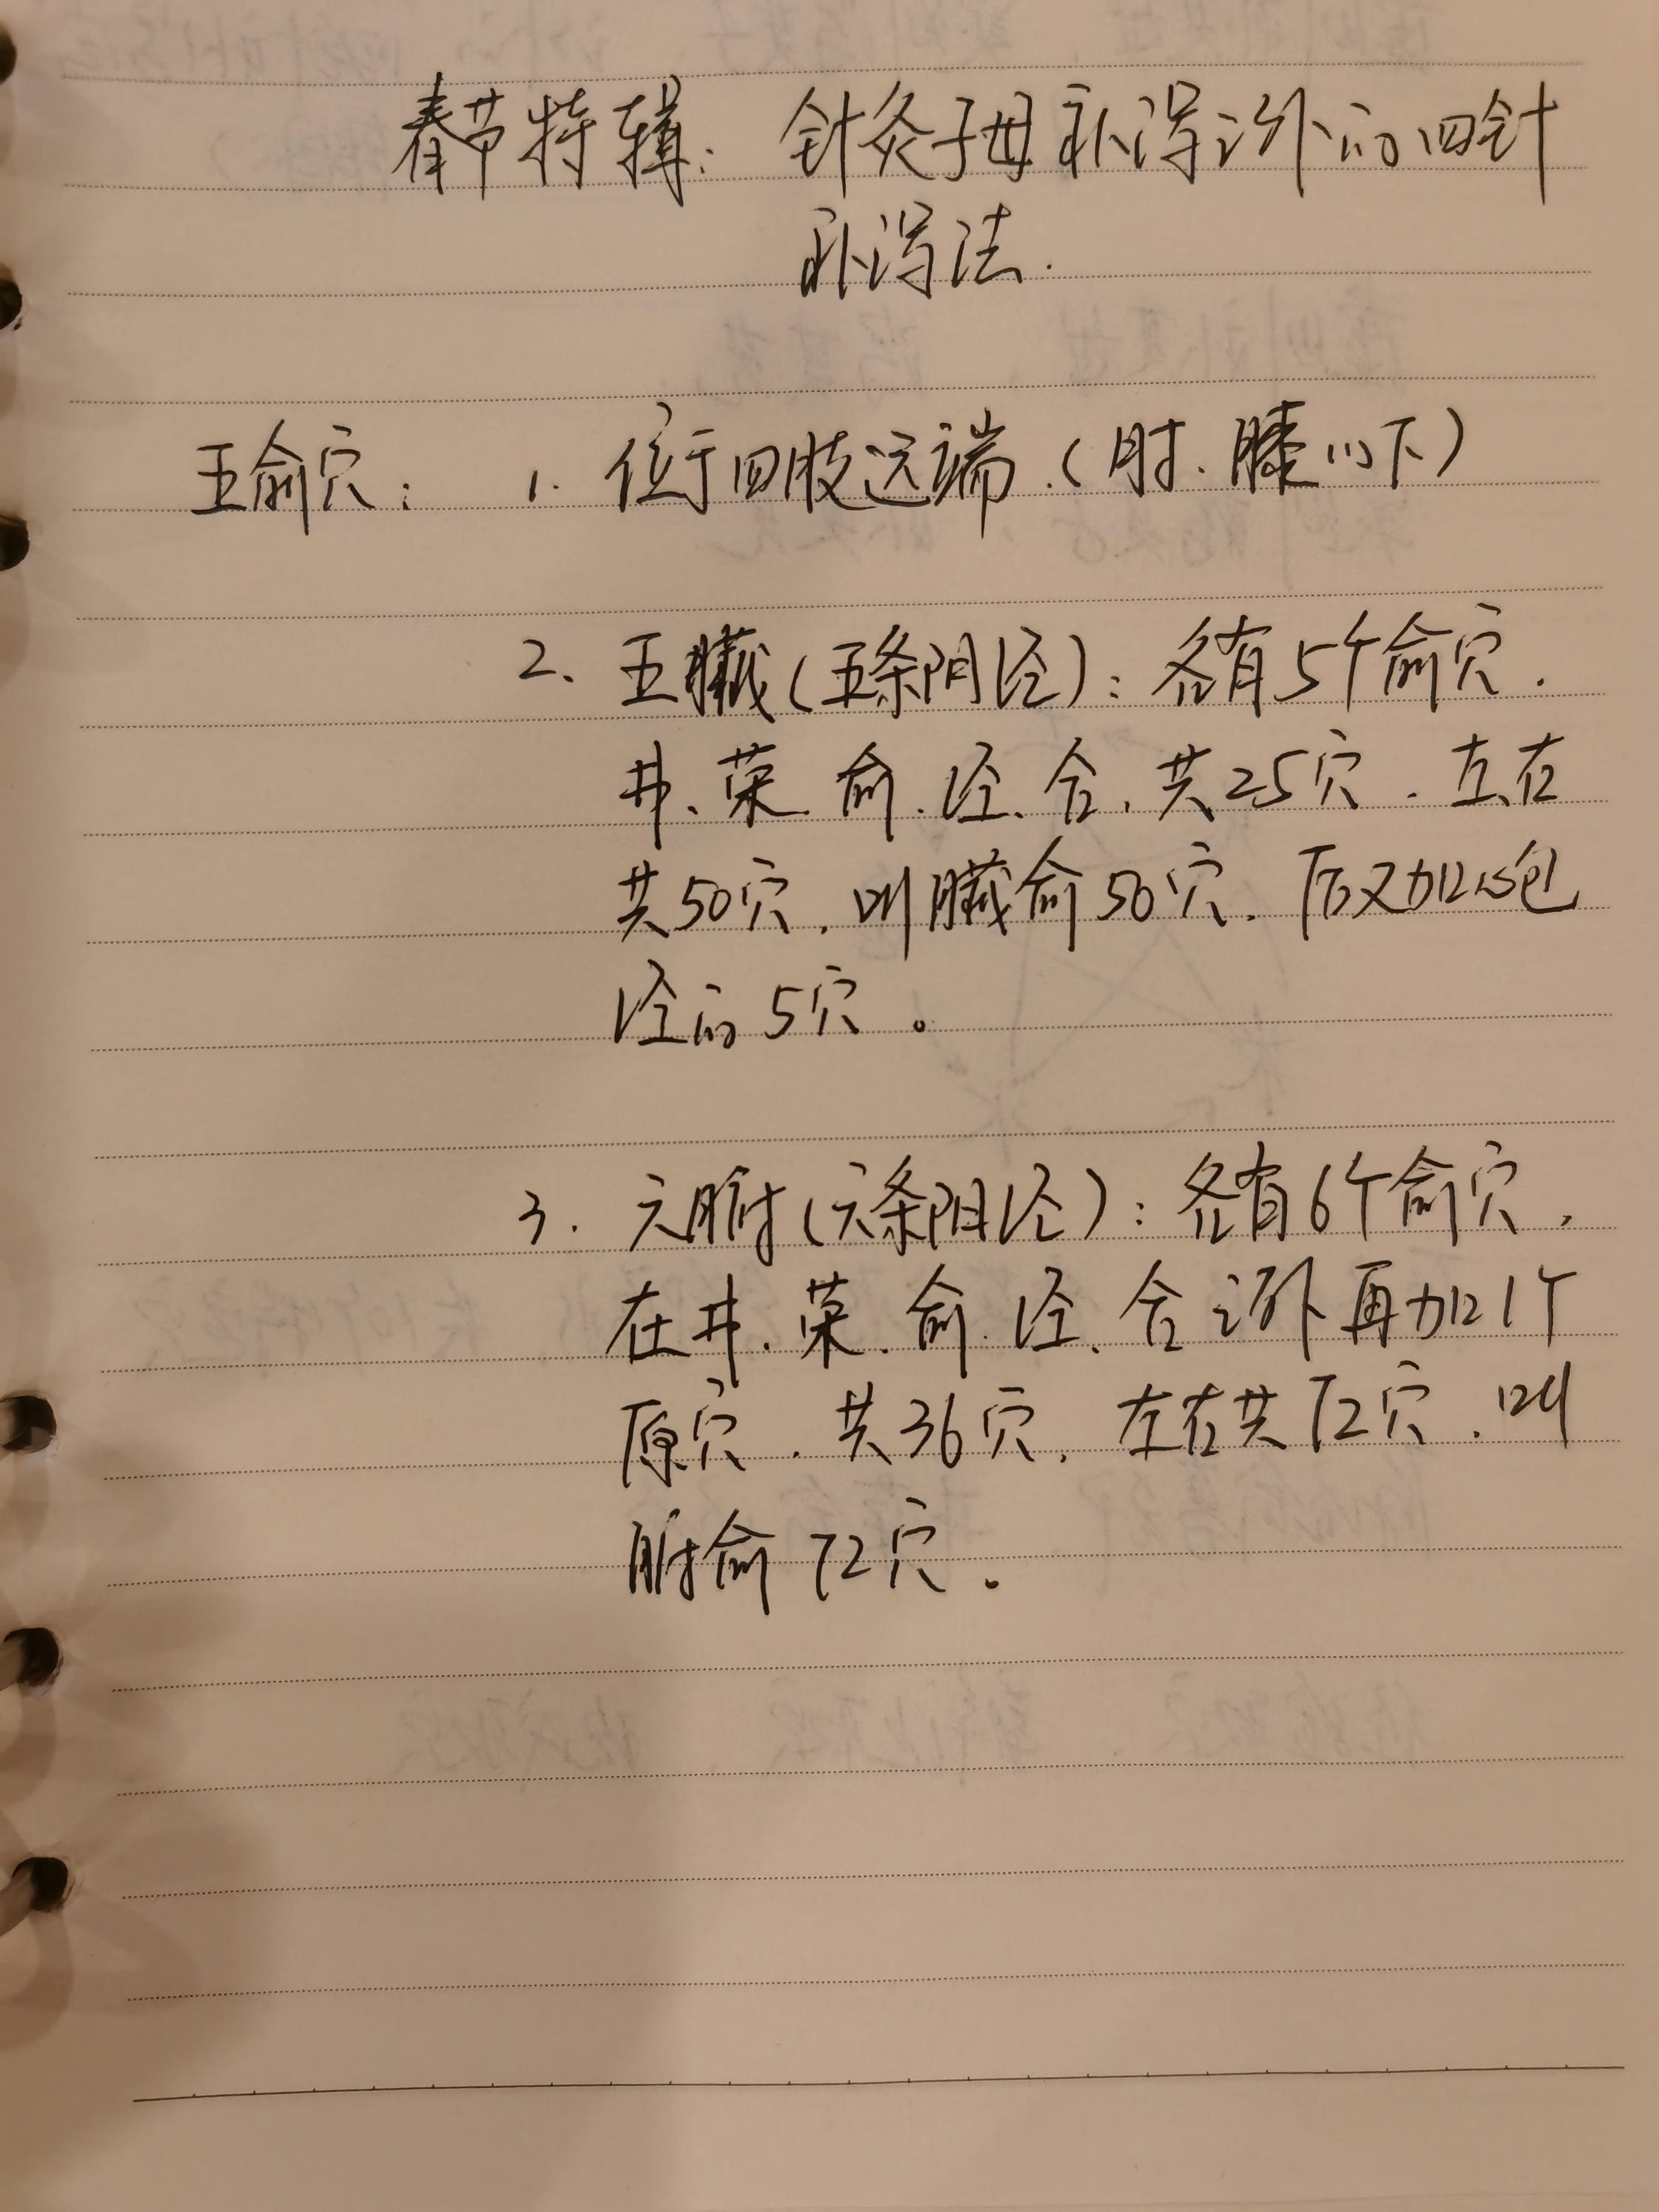 春节特辑：针灸子母补泻之外的四针
补泻法．
五俞穴：1. 位于四肢远端．（肘．膝以下）
2、五臓（五条阴泾）：各有5个俞穴．
井、荣．俞．泾、合，共25穴．左右
共50穴，叫臓俞50穴．后又加心包
泾的5穴。
3．六腑（六条阳泾）：各有6个俞穴，
在井．荣．俞．泾、合之外再加1个
原穴．共36穴，左右共72穴．叫
腑俞72穴。